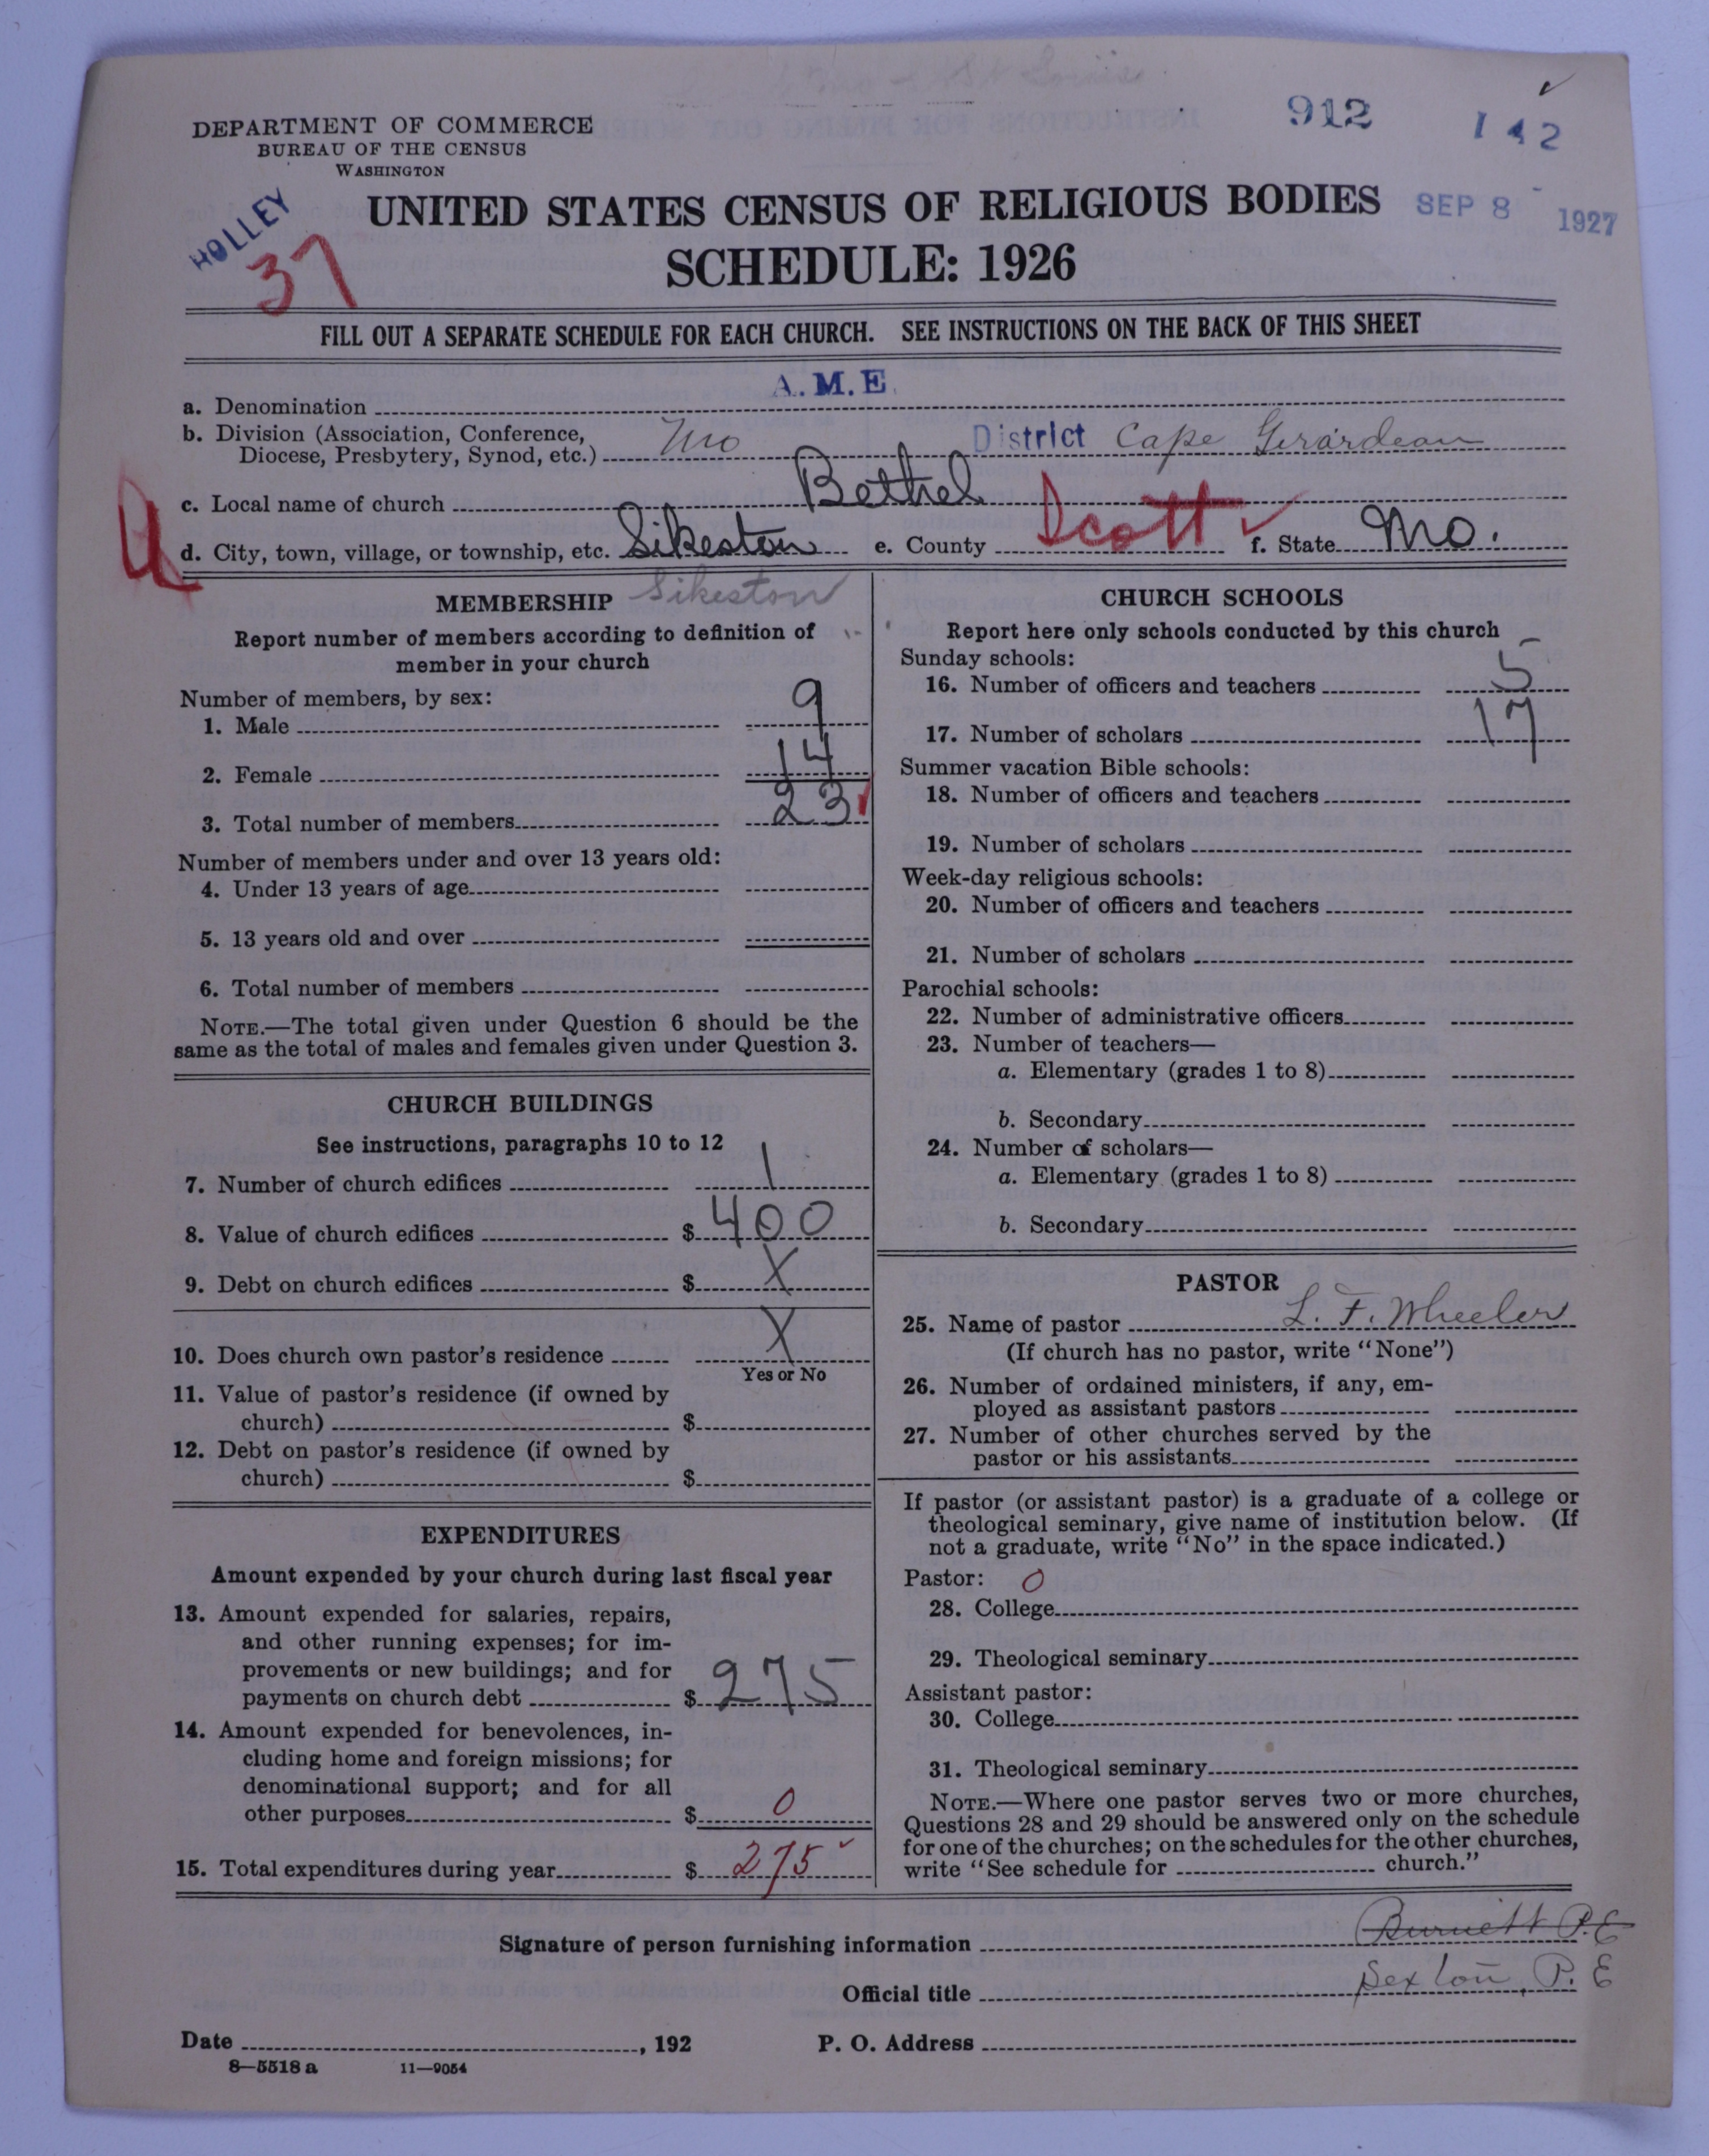 912 142
DEPARTMENT OF COMMERCE
BUREAU OF THE CENSUS
WASHINGTON
HOLLEY
37
UNITED STATES CENSUS OF RELIGIOUS BODIES
SEP 8 1927
SCHEDULE: 1926
FILL OUT A SEPARATE SCHEDULE FOR EACH CHURCH. SEE INSTRUCTIONS ON THE BACK OF THIS SHEET
a. Denomination A. M. E.
b. Division (Association, Conference,
Diocese, Presbytery, Synod, etc.) Mo District Cape Girardeau
c. Local name of church Bethel
d. City, town, village, or township, etc. Sikeston e. County Scott ✓ f. State Mo.
MEMBERSHIP Sikeston
Report number of members according to definition of
member in your church
Number of members, by sex:
1. Male 9
2. Female 14
3. Total number of members 23
Number of members under and over 13 years old:
4. Under 13 years of age
5. 13 years old and over
6. Total number of members
NOTE.—The total given under Question 6 should be the
same as the total of males and females given under Question 3.
CHURCH BUILDINGS
See instructions, paragraphs 10 to 12
7. Number of church edifices 1
8. Value of church edifices $ 400
9. Debt on church edifices $ X
10. Does church own pastor's residence X
Yes or No
11. Value of pastor's residence (if owned by
church) $
12. Debt on pastor's residence (if owned by
church) $
EXPENDITURES
Amount expended by your church during last fiscal year
13. Amount expended for salaries, repairs,
and other running expenses; for im-
provements or new buildings; and for
payments on church debt $ 275
14. Amount expended for benevolences, in-
cluding home and foreign missions; for
denominational support; and for all
other purposes $ 0
15. Total expenditures during year $ 275 ✓
CHURCH SCHOOLS
Report here only schools conducted by this church
Sunday schools:
16. Number of officers and teachers 5
17. Number of scholars 17
Summer vacation Bible schools:
18. Number of officers and teachers
19. Number of scholars
Week-day religious schools:
20. Number of officers and teachers
21. Number of scholars
Parochial schools:
22. Number of administrative officers
23. Number of teachers—
a. Elementary (grades 1 to 8)
b. Secondary
24. Number of scholars—
a. Elementary (grades 1 to 8)
b. Secondary
PASTOR
25. Name of pastor L. F. Wheeler
(If church has no pastor, write "None")
26. Number of ordained ministers, if any, em-
ployed as assistant pastors
27. Number of other churches served by the
pastor or his assistants
If pastor (or assistant pastor) is a graduate of a college or
theological seminary, give name of institution below. (If
not a graduate, write "No" in the space indicated.)
Pastor: 0
28. College
29. Theological seminary
Assistant pastor:
30. College
31. Theological seminary
NOTE.—Where one pastor serves two or more churches,
Questions 28 and 29 should be answered only on the schedule
for one of the churches; on the schedules for the other churches,
write "See schedule for church."
Signature of person furnishing information Burnett P.E
Official title Sexton, P. E
Date , 192 P. O. Address
8—5518 a 11—9054